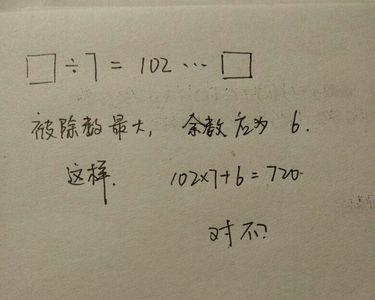 □÷7=102…□
被除数最大,余数应为6.
这样.102×7+6=720.
对不?